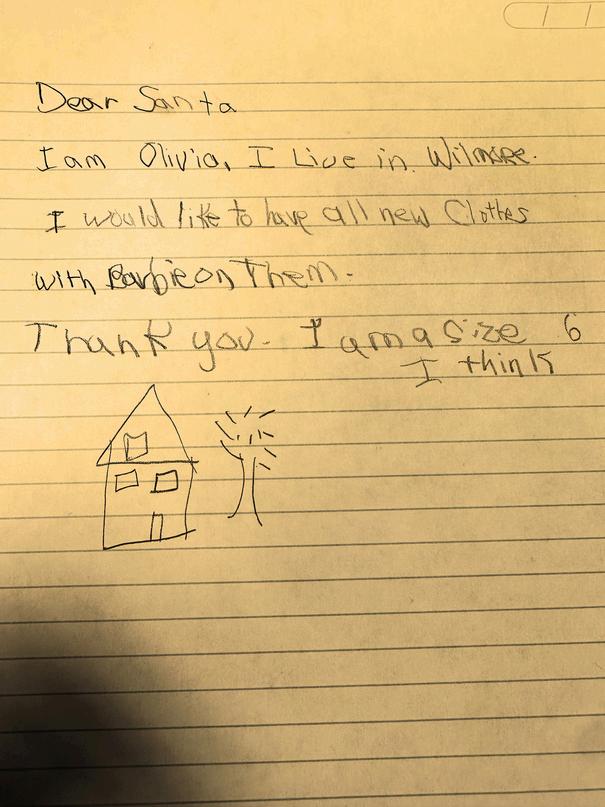 Dear Santa
I am Olivia, I Live in Wilmore.
I would like to have all new Clothes
with Barbie on Them.
Thank you. I am a size 6
I think